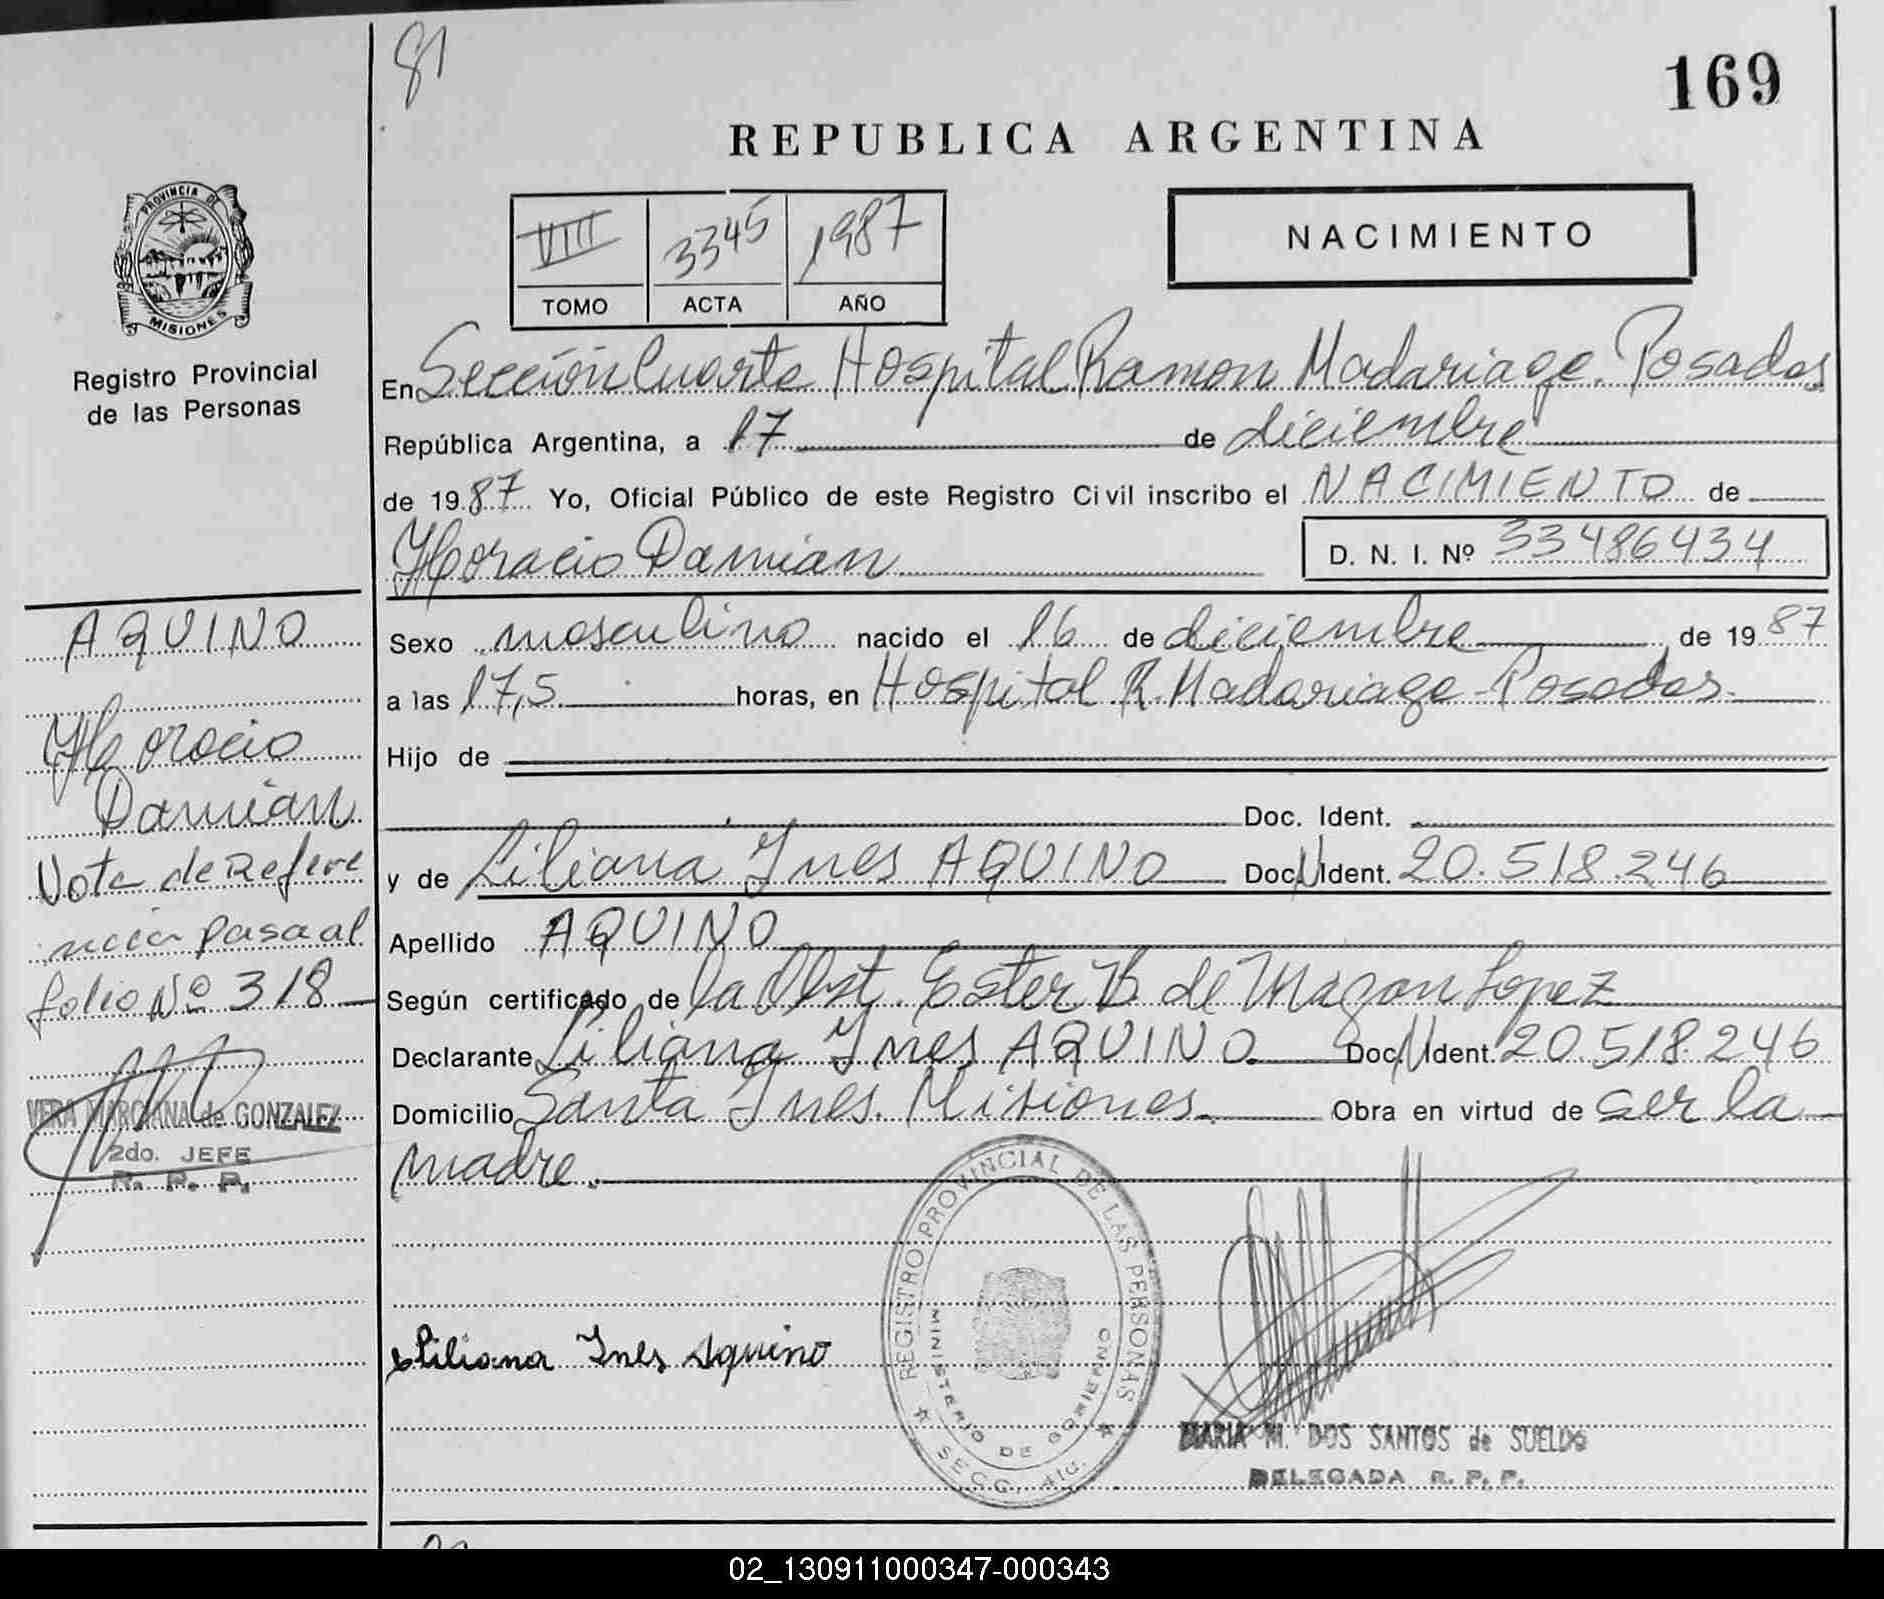 81
169
REPUBLICA ARGENTINA
PROVINCIA DE
MISIONES
Registro Provincial
de las Personas
VIII 3345 1987
TOMO ACTA AÑO
NACIMIENTO
En Sección Cuarta Hospital Ramon Madariaga. Posadas
República Argentina, a 17 de diciembre
de 1987 Yo, Oficial Público de este Registro Civil inscribo el NACIMIENTO de
Horacio Damian
D. N. I. Nº 33486434
Sexo masculino nacido el 16 de diciembre de 1987
a las 17,5 horas, en Hospital R. Madariaga - Posadas.
Hijo de
Doc. Ident.
y de Liliana Ines AQUINO Doc. Ident. 20.518.246
Apellido AQUINO
Según certificado de la Obst. Ester B de Mazan Lopez
Declarante Liliana Ines AQUINO Doc. Ident. 20.518.246
Domicilio Santa Ines. Misiones. Obra en virtud de ser la
madre.
AQUINO
Horacio
Damian
Nota de Refere
ncia pasa al
folio Nº 318
VERA MARCIANA de GONZALEZ
2do. JEFE
R. P. P.
Liliana Ines Aquino
REGISTRO PROVINCIAL DE LAS PERSONAS
MINISTERIO DE GOBIERNO
SECC. 4ta.
MARIA M. DOS SANTOS de SUELDO
DELEGADA R. P. P.
02_130911000347-000343